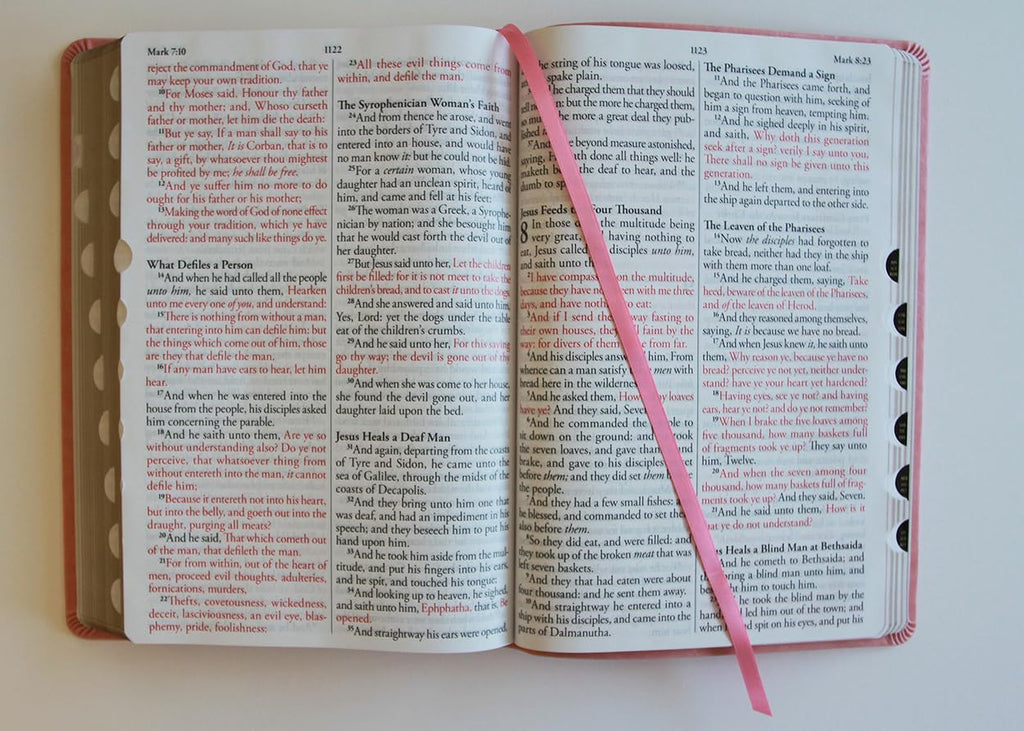 Mark 7:10
1122
reject the commandment of God, that ye
may keep your own tradition.
10For Moses said, Honour thy father
and thy mother; and, Whoso curseth
father or mother, let him die the death:
11But ye say, If a man shall say to his
father or mother, It is Corban, that is to
say, a gift, by whatsoever thou mightest
be profited by me; he shall be free.
12And ye suffer him no more to do
ought for his father or his mother;
13Making the word of God of none effect
through your tradition, which ye have
delivered: and many such like things do ye.
What Defiles a Person
14And when he had called all the people
unto him, he said unto them, Hearken
unto me every one of you, and understand:
15There is nothing from without a man,
that entering into him can defile him: but
the things which come out of him, those
are they that defile the man.
16If any man have ears to hear, let him
hear.
17And when he was entered into the
house from the people, his disciples asked
him concerning the parable.
18And he saith unto them, Are ye so
without understanding also? Do ye not
perceive, that whatsoever thing from
without entereth into the man, it cannot
defile him;
19Because it entereth not into his heart,
but into the belly, and goeth out into the
draught, purging all meats?
20And he said, That which cometh out
of the man, that defileth the man.
21For from within, out of the heart of
men, proceed evil thoughts, adulteries,
fornications, murders,
22Thefts, covetousness, wickedness,
deceit, lasciviousness, an evil eye, blas-
phemy, pride, foolishness:
23All these evil things come from
within, and defile the man.
The Syrophenician Woman's Faith
24And from thence he arose, and went
into the borders of Tyre and Sidon, and
entered into an house, and would have
no man know it: but he could not be hid.
25For a certain woman, whose young
daughter had an unclean spirit, heard of
him, and came and fell at his feet:
26The woman was a Greek, a Syrophe-
nician by nation; and she besought him
that he would cast forth the devil out of
her daughter.
27But Jesus said unto her, Let the children
first be filled: for it is not meet to take the
children's bread, and to cast it unto the dogs.
28And she answered and said unto him,
Yes, Lord: yet the dogs under the table
eat of the children's crumbs.
29And he said unto her, For this saying
go thy way; the devil is gone out of thy
daughter.
30And when she was come to her house,
she found the devil gone out, and her
daughter laid upon the bed.
Jesus Heals a Deaf Man
31And again, departing from the coasts
of Tyre and Sidon, he came unto the
sea of Galilee, through the midst of the
coasts of Decapolis.
32And they bring unto him one that
was deaf, and had an impediment in his
speech; and they beseech him to put his
hand upon him.
33And he took him aside from the mul-
titude, and put his fingers into his ears,
and he spit, and touched his tongue;
34And looking up to heaven, he sighed,
and saith unto him, Ephphatha, that is, Be
opened.
35And straightway his ears were opened,
1123
Mark 8:23
the string of his tongue was loosed,
spake plain.
he charged them that they should
tell no but the more he charged them,
so mu the more a great deal they pub-
lished
And beyond measure astonished,
saying, hath done all things well: he
maketh the deaf to hear, and the
dumb to
Jesus Feeds Four Thousand
8 In those the multitude being
very great, having nothing to
eat, Jesus called disciples unto him,
and saith unto
2I have compassion on the multitude,
because they have been with me three
days, and have nothing to eat:
3And if I send them away fasting to
their own houses, they will faint by the
way: for divers of them came from far.
4And his disciples answered him, From
whence can a man satisfy men with
bread here in the wilderness
5And he asked them, How many loaves
have ye? And they said, Seven.
6And he commanded the people to
sit down on the ground: and took
the seven loaves, and gave thanks, and
brake, and gave to his disciples to set
before them; and they did set them
the people.
7And they had a few small fishes: and
he blessed, and commanded to set them
also before them.
8So they did eat, and were filled: and
they took up of the broken meat that was
left seven baskets.
9And they that had eaten were about
four thousand: and he sent them away.
10And straightway he entered into a
ship with his disciples, and came into the
parts of Dalmanutha.
The Pharisees Demand a Sign
11And the Pharisees came forth, and
began to question with him, seeking of
him a sign from heaven, tempting him.
12And he sighed deeply in his spirit,
and saith, Why doth this generation
seek after a sign? verily I say unto you,
There shall no sign be given unto this
generation.
13And he left them, and entering into
the ship again departed to the other side.
The Leaven of the Pharisees
14Now the disciples had forgotten to
take bread, neither had they in the ship
with them more than one loaf.
15And he charged them, saying, Take
heed, beware of the leaven of the Pharisees,
and of the leaven of Herod.
16And they reasoned among themselves,
saying, It is because we have no bread.
17And when Jesus knew it, he saith unto
them, Why reason ye, because ye have no
bread? perceive ye not yet, neither under-
stand? have ye your heart yet hardened?
18Having eyes, see ye not? and having
ears, hear ye not? and do ye not remember?
19When I brake the five loaves among
five thousand, how many baskets full
of fragments took ye up? They say unto
him, Twelve.
20And when the seven among four
thousand, how many baskets full of frag-
ments took ye up? And they said, Seven.
21And he said unto them, How is it
that ye do not understand?
Jesus Heals a Blind Man at Bethsaida
And he cometh to Bethsaida; and
bring a blind man unto him, and
him to touch him.
he took the blind man by the
hand, led him out of the town; and
when spit on his eyes, and put his